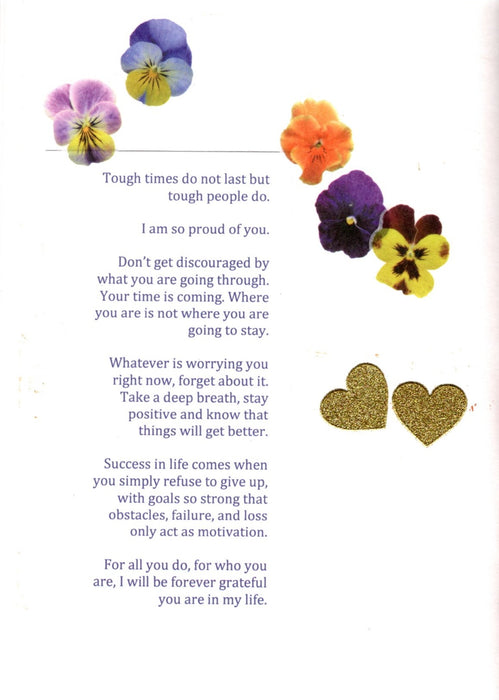 Tough times do not last but
tough people do.
I am so proud of you.
Don't get discouraged by
what you are going through.
Your time is coming. Where
you are is not where you are
going to stay.
Whatever is worrying you
right now, forget about it.
Take a deep breath, stay
positive and know that
things will get better.
Success in life comes when
you simply refuse to give up,
with goals so strong that
obstacles, failure, and loss
only act as motivation.
For all you do, for who you
are, I will be forever grateful
you are in my life.